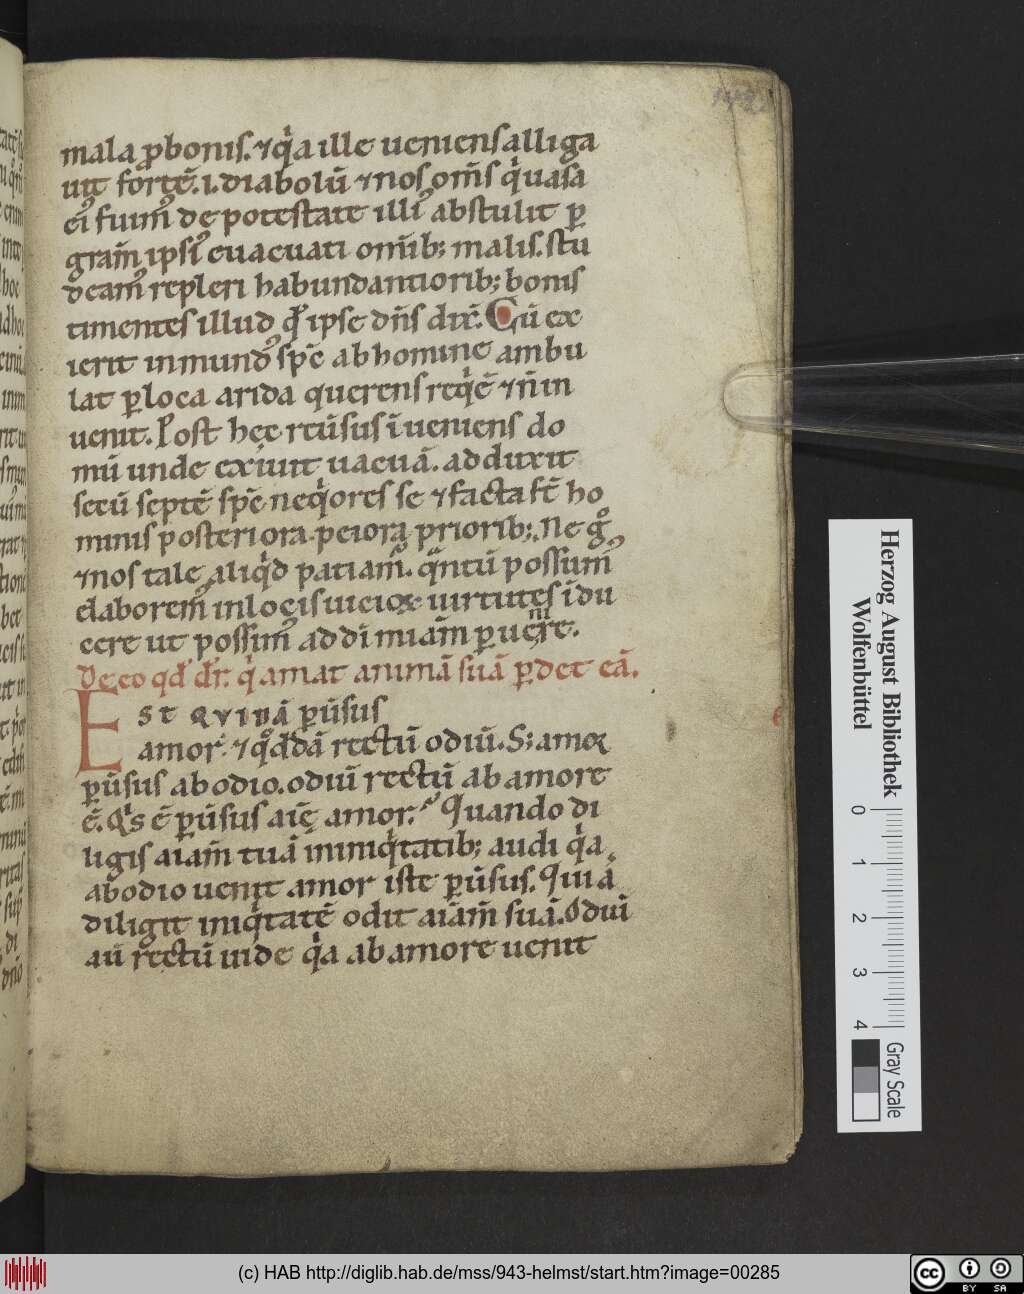 mala ꝓbonis. ⁊ qͥa ille ueniens alliga
uit forte᷒. i. diabolū ⁊ nos om̄s qͥ uasa
eiꝰ fuimꝰ de potestate illiꝰ abstulit ꝑ
gram̄ ipsiꝰ euacuati omīb; malis. stu
deamꝰ repleri habundantiorib; bonis
timentes illud qͩ ipse dn̄s dix̄. Cū ex
ierit inmundꝰ sp̄c ab homine ambu
lat ꝑ loca arida querens reqͥē ⁊ n̄ in
uenit. Post hęc reūsus ī ueniens do
mū unde exiuit uacuā. adduxit
secū septē sp̄c neqͥores se ⁊ facta st̄ ho
minis posteriora peiora priorib;. Ne gͦ
⁊ nos tale aliqͥd patiamꝰ. qͣntū possumꝰ
elaboremꝰ in locis uicioꝝ uirtutes īdu
cere ut possimꝰ ad dī miam̄ ꝑuenire.
De eo qd̄ dr̄. qͥ amat animā suā ꝑdet eā.
EST QVIDĀ ꝑūsus
amor. ⁊ qͦddā rectū odiū. S; amor
ꝑūsus ab odio. odiū rectū ab amore
ē. Qͥs ē ꝑūsus aīę amor. Quando di
ligis aīam tuā iniqͥtatib; audi qͥa
ab odio uenit amor iste ꝑūsus. Qui a
diligit iniqͥtatē odit aīam suā. Odiū
aū rectū uide qͥa ab amore uenit
Herzog August Bibliothek
Wolfenbüttel
0 1 2 3 4
Gray Scale
(c) HAB http://diglib.hab.de/mss/943-helmst/start.htm?image=00285
cc BY SA